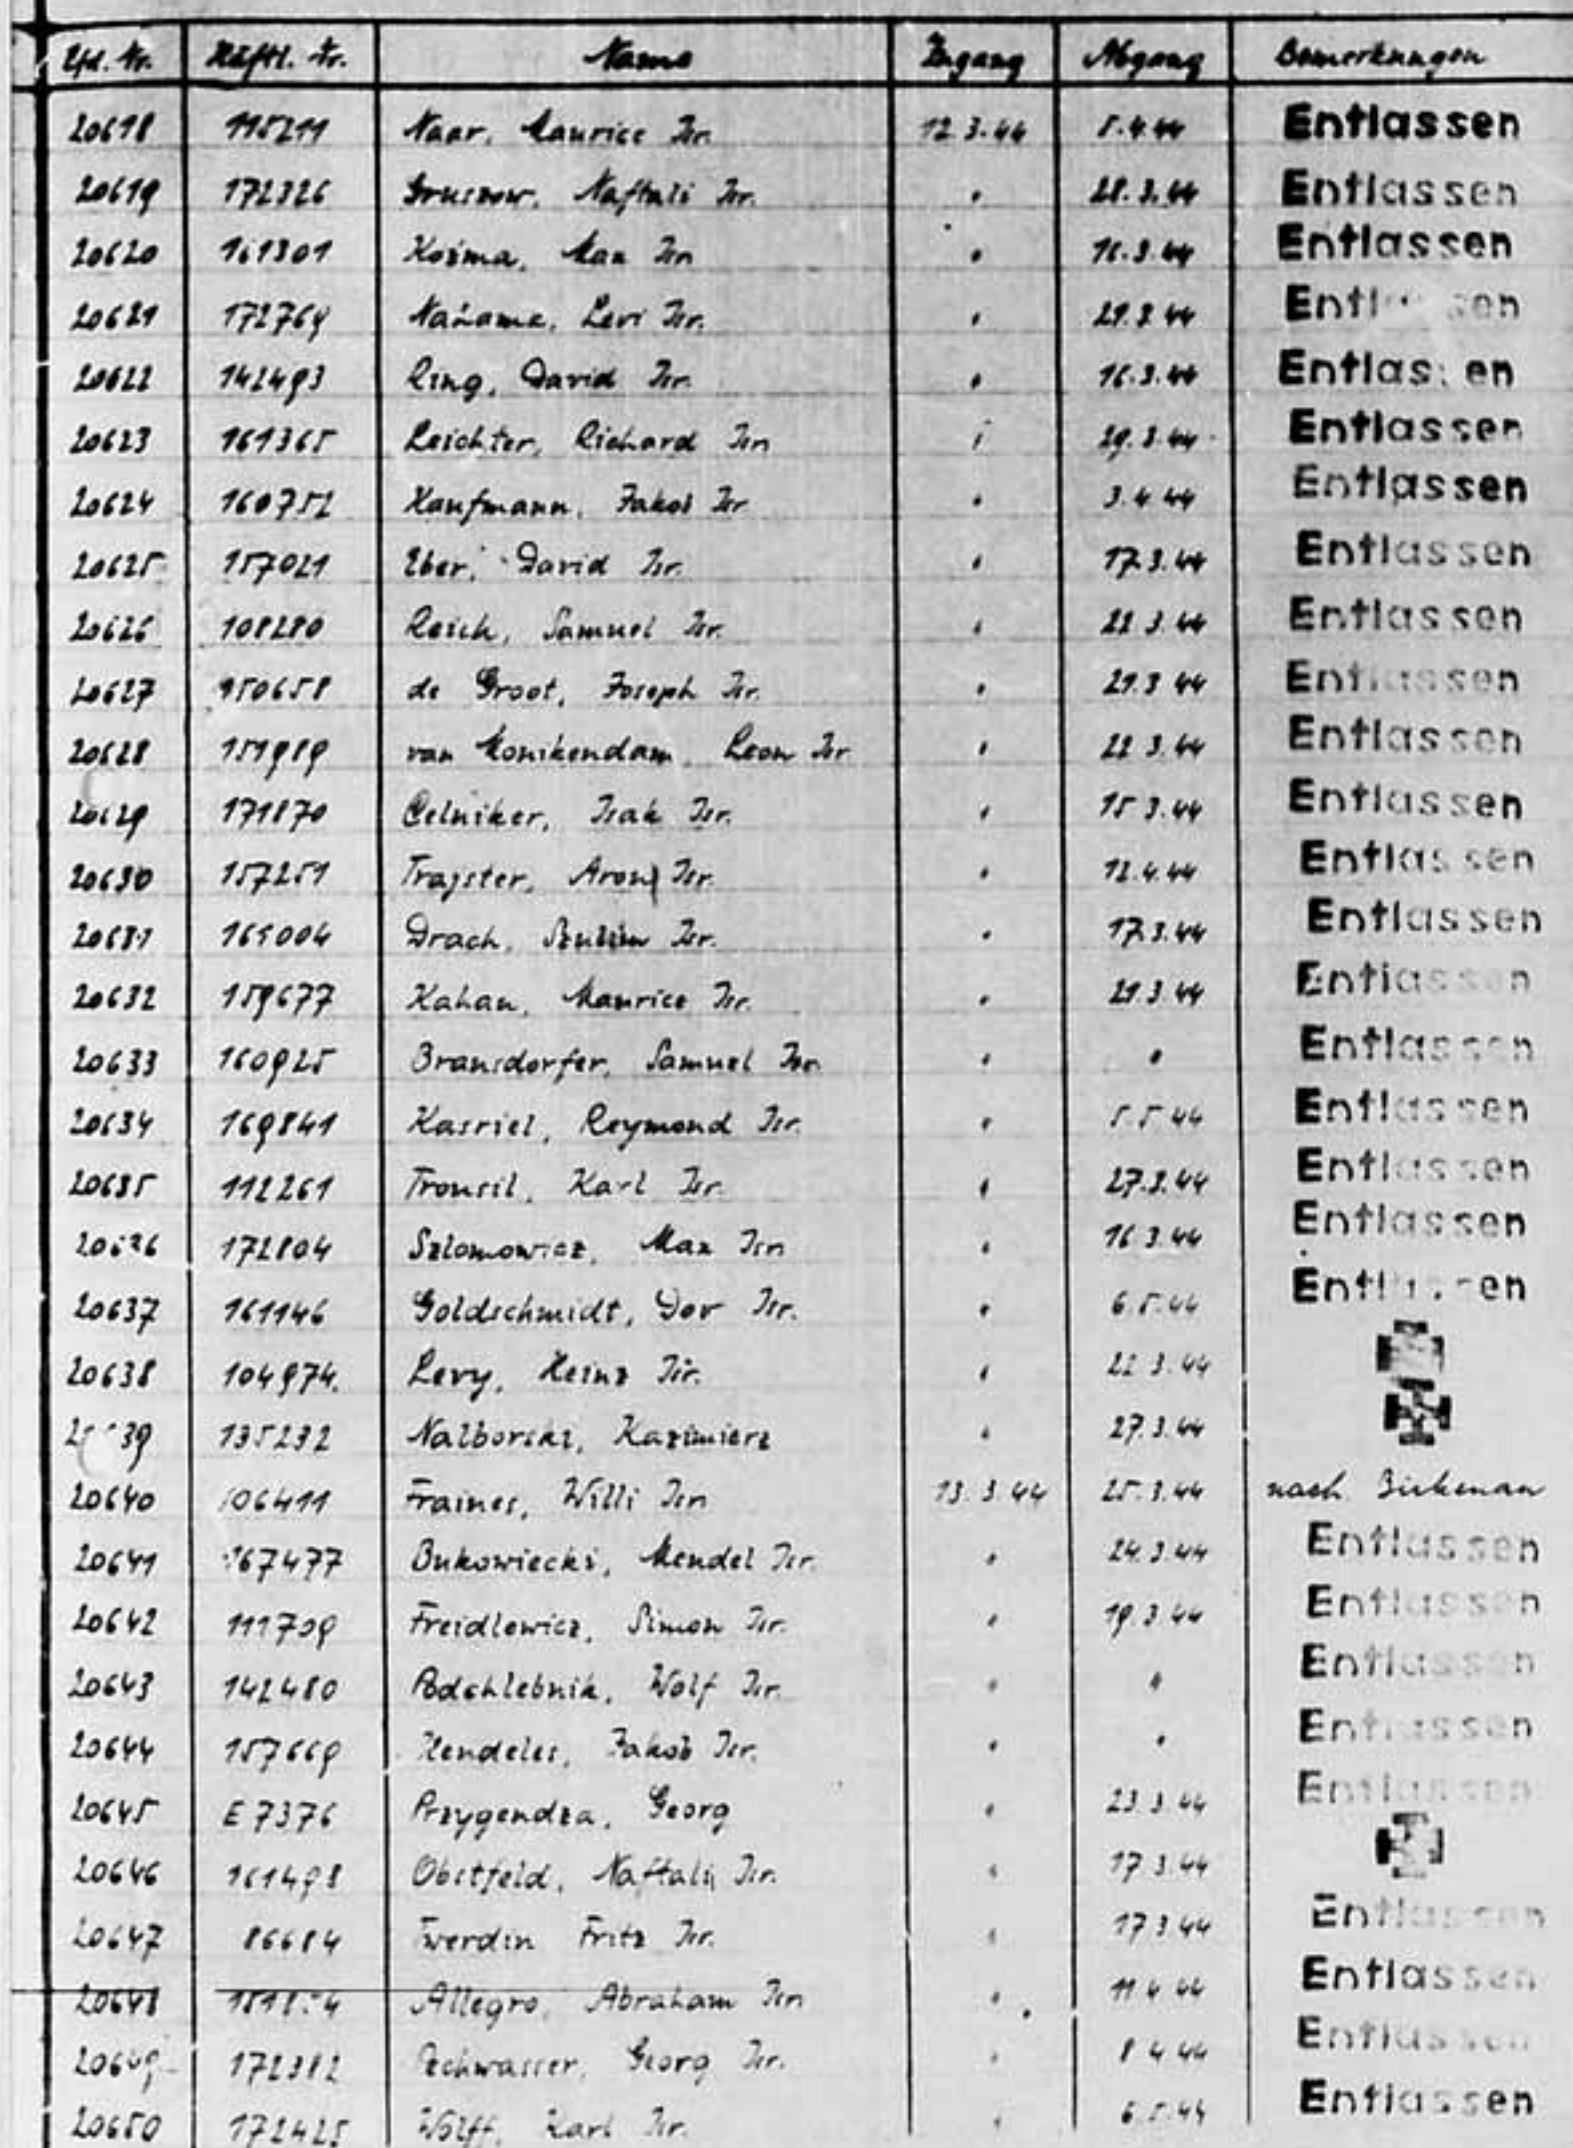 Lfd. Nr. Häftl. Nr. Name Zugang Abgang Bemerkungen
20618 115211 Naar, Maurice Isr. 12.3.44 5.4.44 Entlassen
20619 172326 Gruszow, Naftali Isr. " 28.3.44 Entlassen
20620 161301 Kosma, Max Isr. " 16.3.44 Entlassen
20621 172769 Nahama, Levi Isr. " 29.3.44 Entlassen
20622 142493 Ring, David Isr. " 16.3.44 Entlassen
20623 161365 Leichter, Richard Isr. " 29.3.44 Entlassen
20624 160752 Kaufmann, Jakob Isr. " 3.4.44 Entlassen
20625 157021 Eber, David Isr. " 17.3.44 Entlassen
20626 108280 Reich, Samuel Isr. " 22.3.44 Entlassen
20627 150658 de Groot, Joseph Isr. " 29.3.44 Entlassen
20628 151989 van Monikendam, Leon Isr. " 22.3.44 Entlassen
20629 171870 Celniker, Isak Isr. " 15.3.44 Entlassen
20630 157251 Trajster, Aron Isr. " 12.4.44 Entlassen
20631 161004 Drach, Szulim Isr. " 17.3.44 Entlassen
20632 159677 Kahan, Maurice Isr. " 29.3.44 Entlassen
20633 160925 Bransdorfer, Samuel Isr. " " Entlassen
20634 169841 Kasriel, Reymond Isr. " 5.5.44 Entlassen
20635 112261 Trousil, Karl Isr. " 27.3.44 Entlassen
20636 172804 Szlomowicz, Max Isr. " 16.3.44 Entlassen
20637 161146 Goldschmidt, Dov Isr. " 6.5.44 Entlassen
20638 104974 Levy, Heinz Isr. " 22.3.44
20639 135232 Nalborski, Kazimierz " 27.3.44
20640 106411 Fraines, Willi Isr. 13.3.44 25.3.44 nach Birkenau
20641 167477 Bukowiecki, Mendel Isr. " 24.3.44 Entlassen
20642 111709 Freidlowicz, Simon Isr. " 19.3.44 Entlassen
20643 142480 Podchlebnik, Wolf Isr. " " Entlassen
20644 157669 Mendeles, Jakob Isr. " " Entlassen
20645 E 7376 Przygendza, Georg " 23.3.44 Entlassen
20646 161498 Obstfeld, Naftali Isr. " 17.3.44
20647 86684 Twerdin Fritz Isr. " 17.3.44 Entlassen
20648 Allegro, Abraham Isr. " 11.4.44 Entlassen
20649 172382 Pechwasser, Georg Isr. " 8.4.44 Entlassen
20650 172425 Wolff, Karl Isr. " 6.5.44 Entlassen